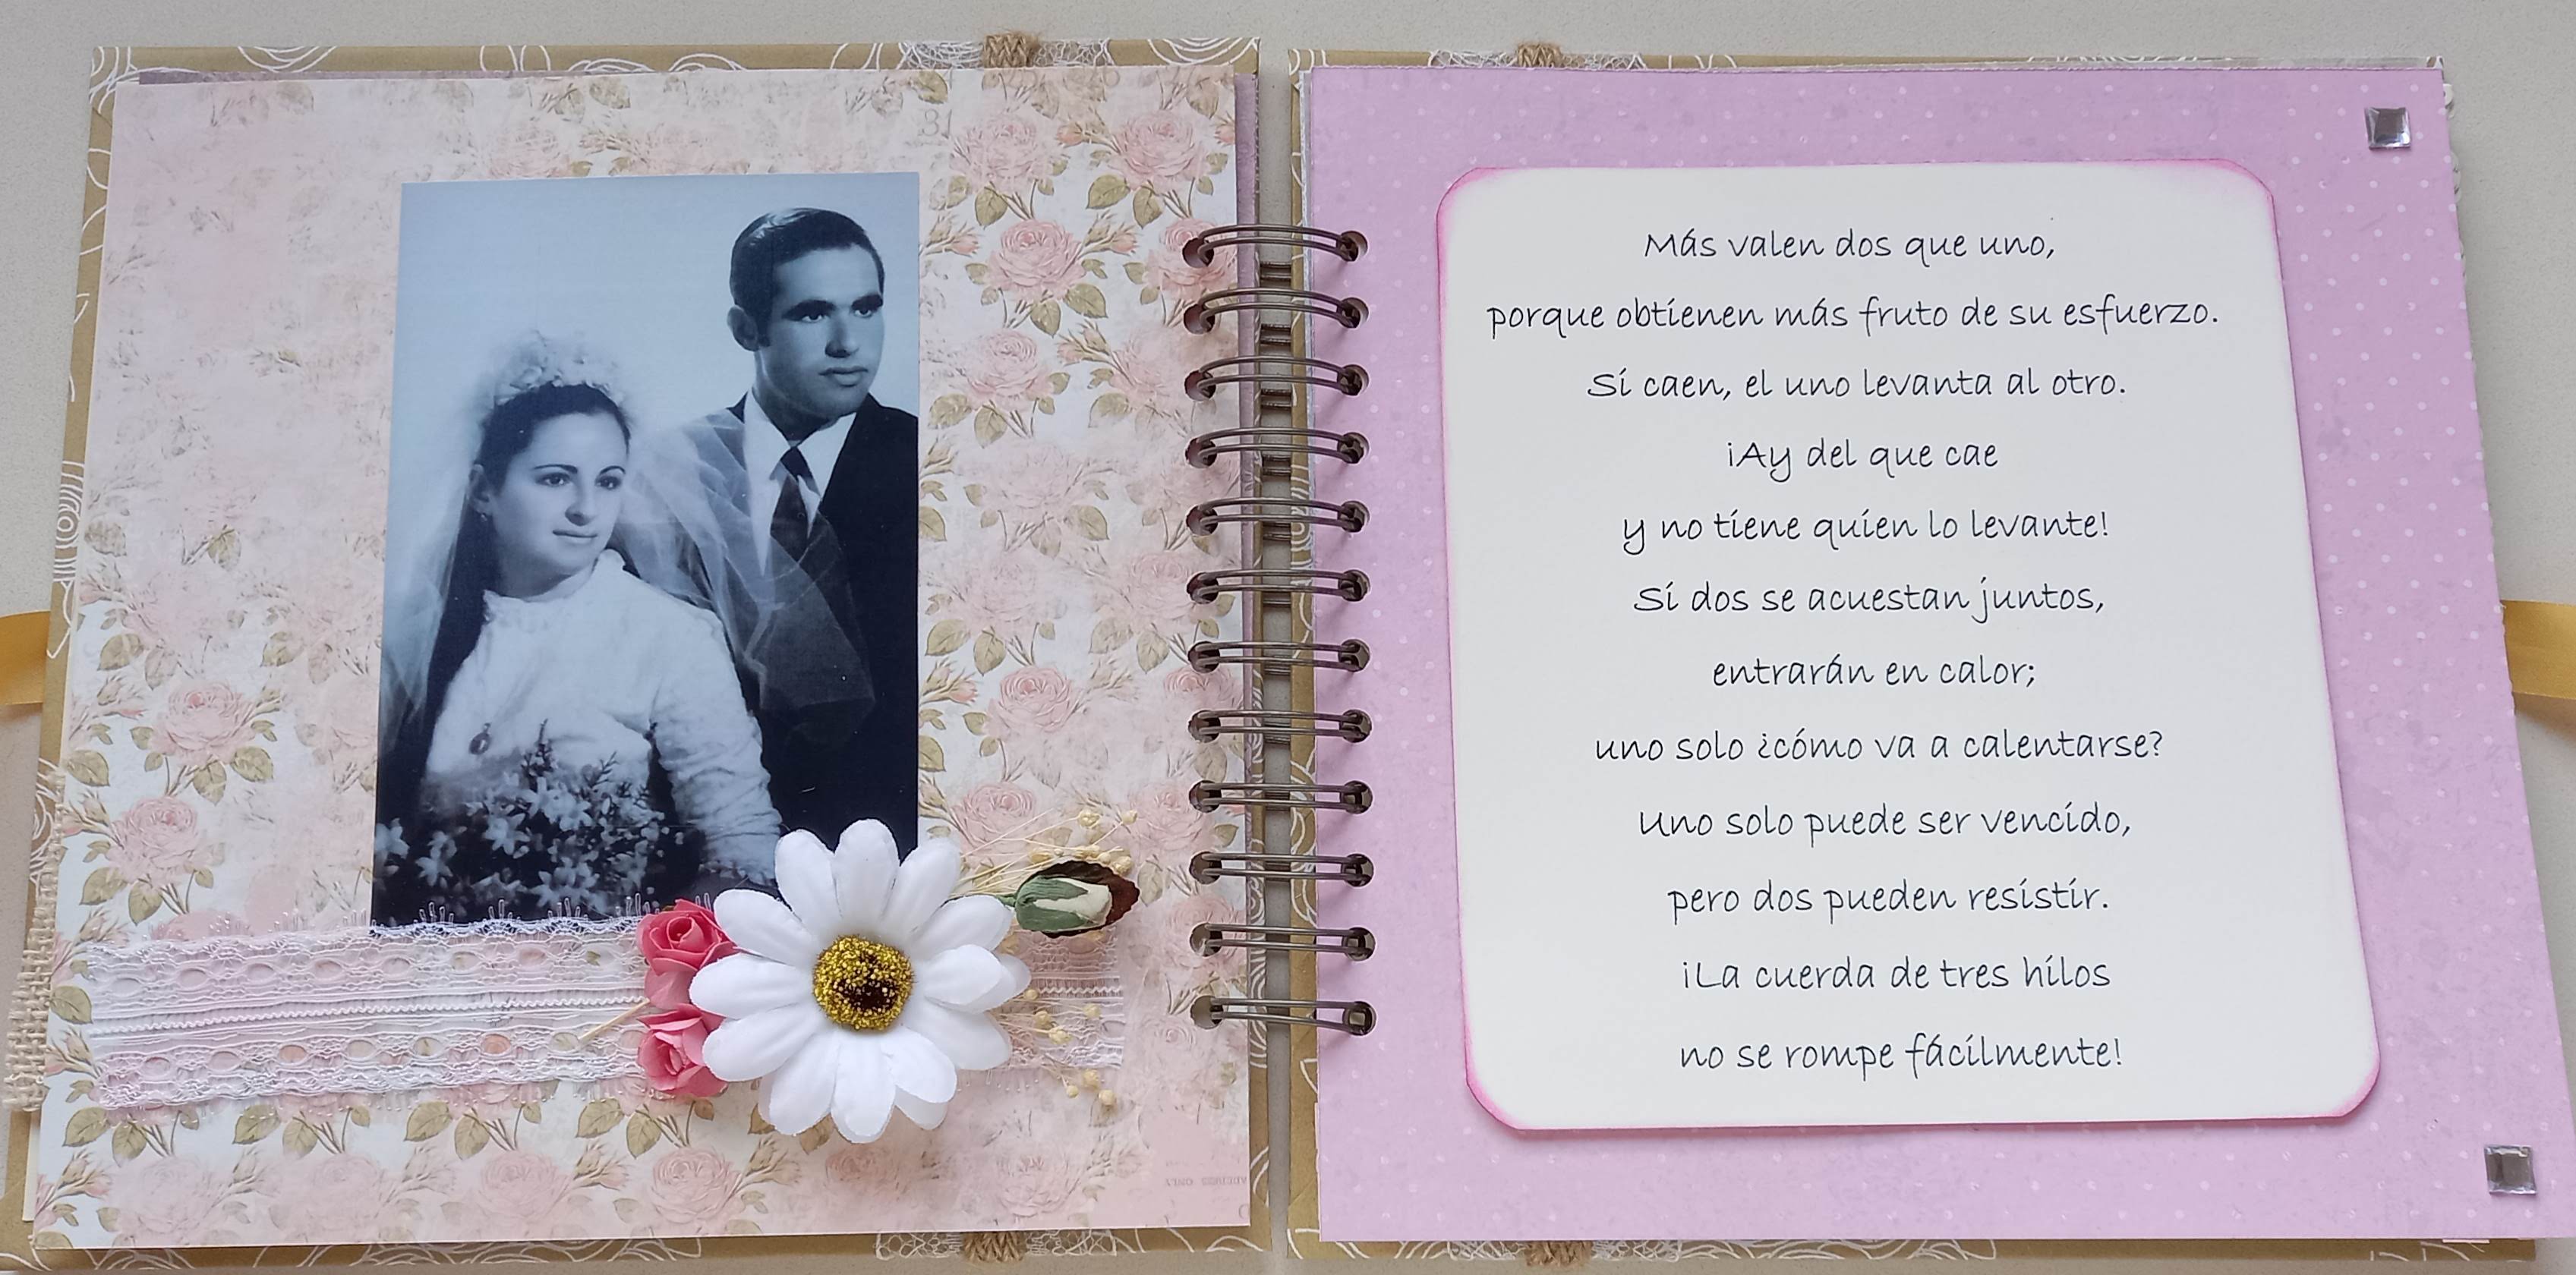 Más valen dos que uno,
porque obtienen más fruto de su esfuerzo.
Si caen, el uno levanta al otro.
¡Ay del que cae
y no tiene quien lo levante!
Si dos se acuestan juntos,
entrarán en calor;
uno solo ¿cómo va a calentarse?
Uno solo puede ser vencido,
pero dos pueden resistir.
¡La cuerda de tres hilos
no se rompe fácilmente!